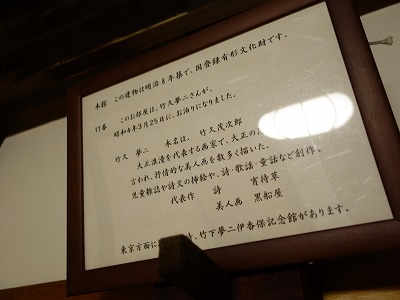 本館 この建物は明治8年築で、国登録有形文化財です。
17番 このお部屋は、竹久夢二さんが、
昭和4年3月25日に、お泊りになりました。
竹久 夢二 本名は、竹久茂次郎
大正浪漫を代表する画家で、大正の
言われ、抒情的な美人画を数多く描いた。
児童雑誌や詩文の挿絵や、詩・歌謡・童話など創作。
代表作 詩 宵待草
美人画 黒船屋
東京方面に 、竹下夢二伊香保記念館があります。